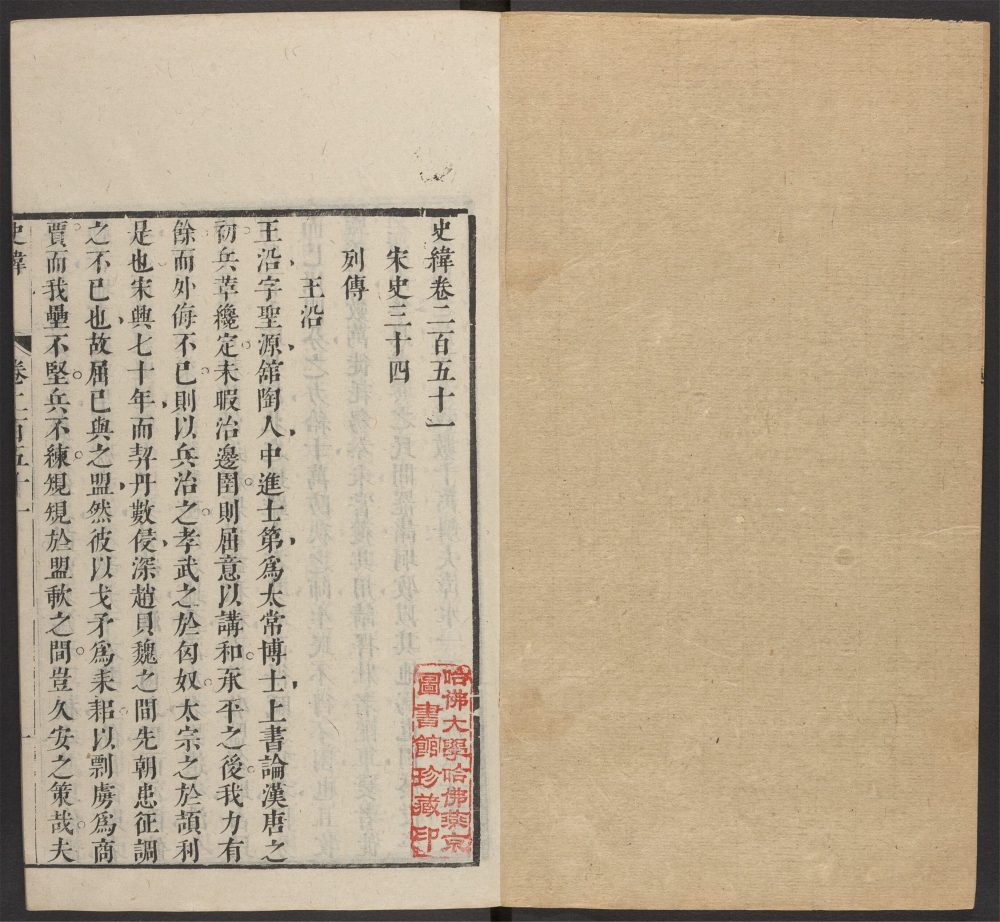 史緯卷二百五十一
宋史三十四
列傳
王沿
王沿字聖源館陶人中進士第爲太常博士上書論漢唐之
初兵革纔定未暇治邊圉則屈意以講和承平之後我力有
餘而外侮不已則以兵治之孝武之於匈奴太宗之於頡利
是也宋興七十年而契丹數侵深趙貝魏之間先朝患征調
之不已也故屈已與之盟然彼以戈矛爲耒耜以剽虜爲商
賈而我壘不堅兵不練規規於盟歃之間豈久安之策哉夫
史緯
卷二百五十一
一
哈佛大學哈佛燕京
圖書館珍藏印